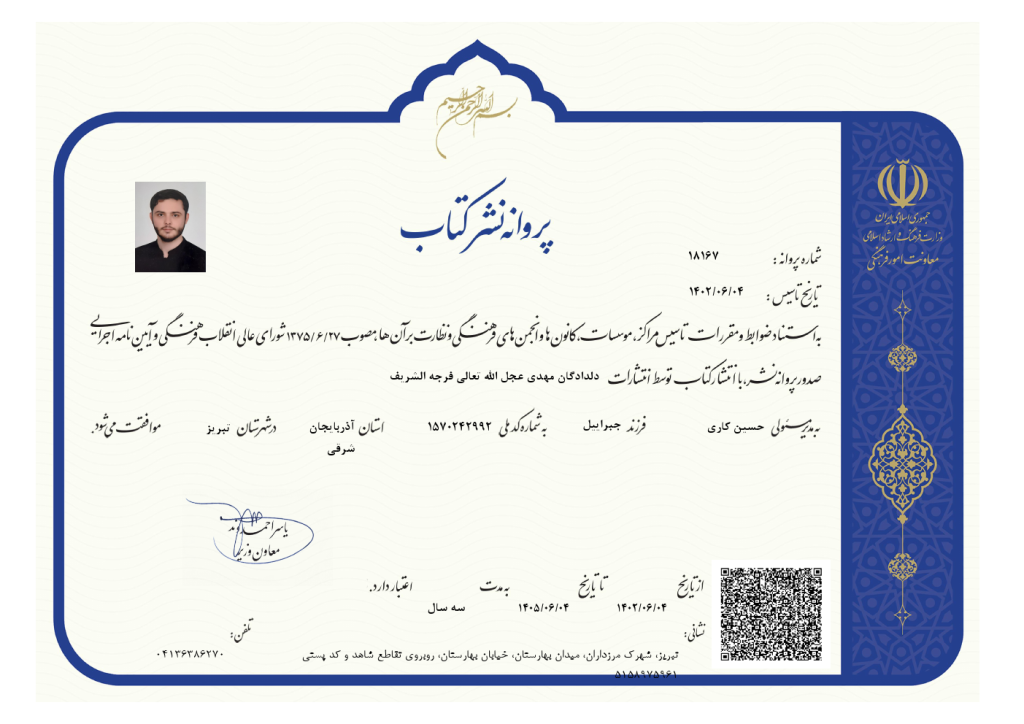 بسم الله الرحمن الرحیم
جمهوری اسلامی ایران
وزارت فرهنگ و ارشاد اسلامی
معاونت امور فرهنگی
پروانه نشر کتاب
شماره پروانه : ۱۸۱۶۷
تاریخ تاسیس : ۱۴۰۲/۰۶/۰۴
به استناد ضوابط و مقررات تاسیس مراکز، موسسات، کانون ها و انجمن های فرهنگی و نظارت بر آن ها مصوب ۱۳۷۵/۶/۲۷ شورای عالی انقلاب فرهنگی و آیین نامه اجرایی
صدور پروانه نشر، با انتشار کتاب توسط انتشارات دلدادگان مهدی عجل الله تعالی فرجه الشریف
به مدیر مسئولی حسین کاری فرزند جبراییل به شماره کد ملی ۱۵۷۰۲۴۲۹۹۲ استان آذربایجان شرقی در شهرستان تبریز موافقت می شود.
یاسر احمدوند
معاون وزیر
از تاریخ ۱۴۰۲/۰۶/۰۴ تا تاریخ ۱۴۰۵/۰۶/۰۴ به مدت سه سال اعتبار دارد.
نشانی:
تبریز، شهرک مرزداران، میدان بهارستان، خیابان بهارستان، روبروی تقاطع شاهد و کد پستی
۵۱۵۸۹۷۵۹۶۱
تلفن:
۰۴۱۳۶۳۸۶۲۷۰